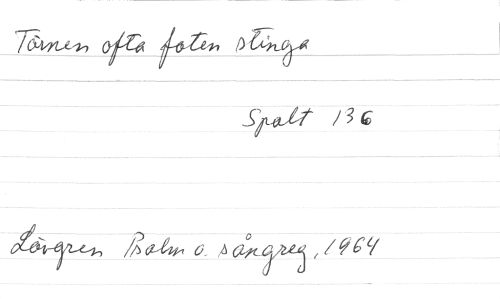 Törnen ofta foten stinga
Spalt 136
Lövgren Psalm o. sångreg, 1964